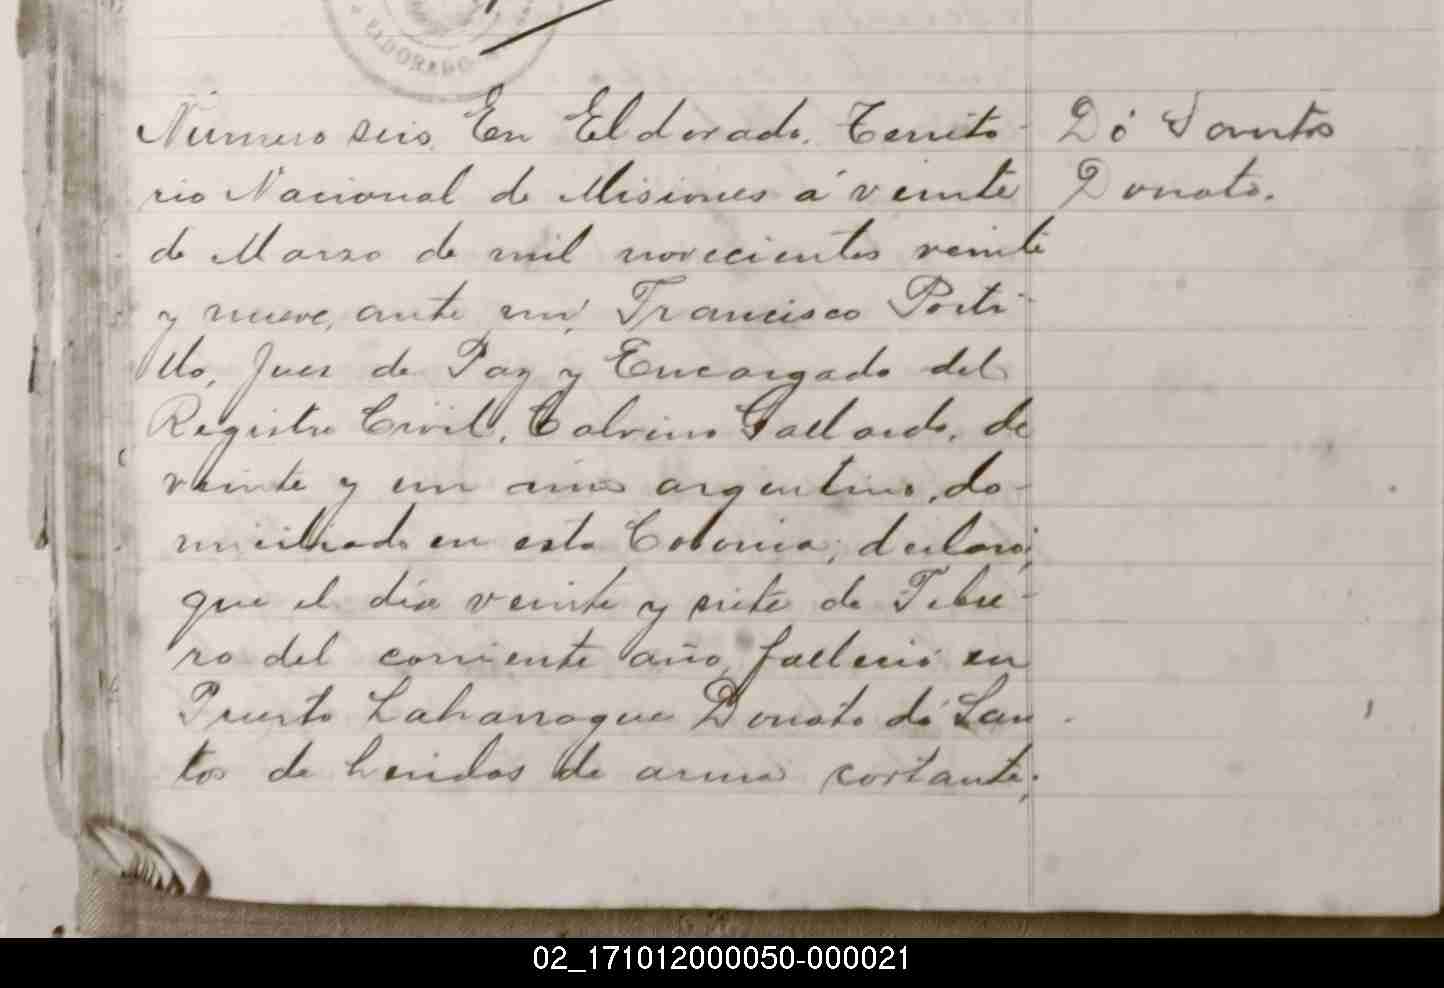 ELDORADO
Número seis. En Eldorado, Territo-
rio Nacional de Misiones á veinte
de Marzo de mil novecientos veinte
y nueve, ante mi, Francisco Porti-
llo, Juez de Paz y Encargado del
Registro Civil, Calvino Gallardo, de
veinte y un años argentino, do-
miciliado en esta Colonia; declaró;
que el día veinte y siete de Febre-
ro del corriente año, falleció en
Puerto Laharrague Donato dó San
tos de heridas de arma cortante;
Dó Santos
Donato.
02_171012000050-000021